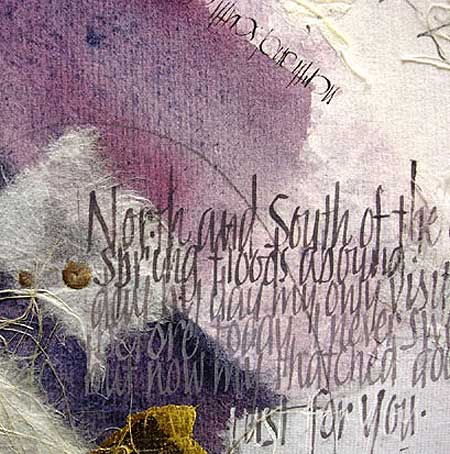 North and South of the
spring floods abound.
day by day my only visit
before today, I never sw
but now my thatched doo
just for you.